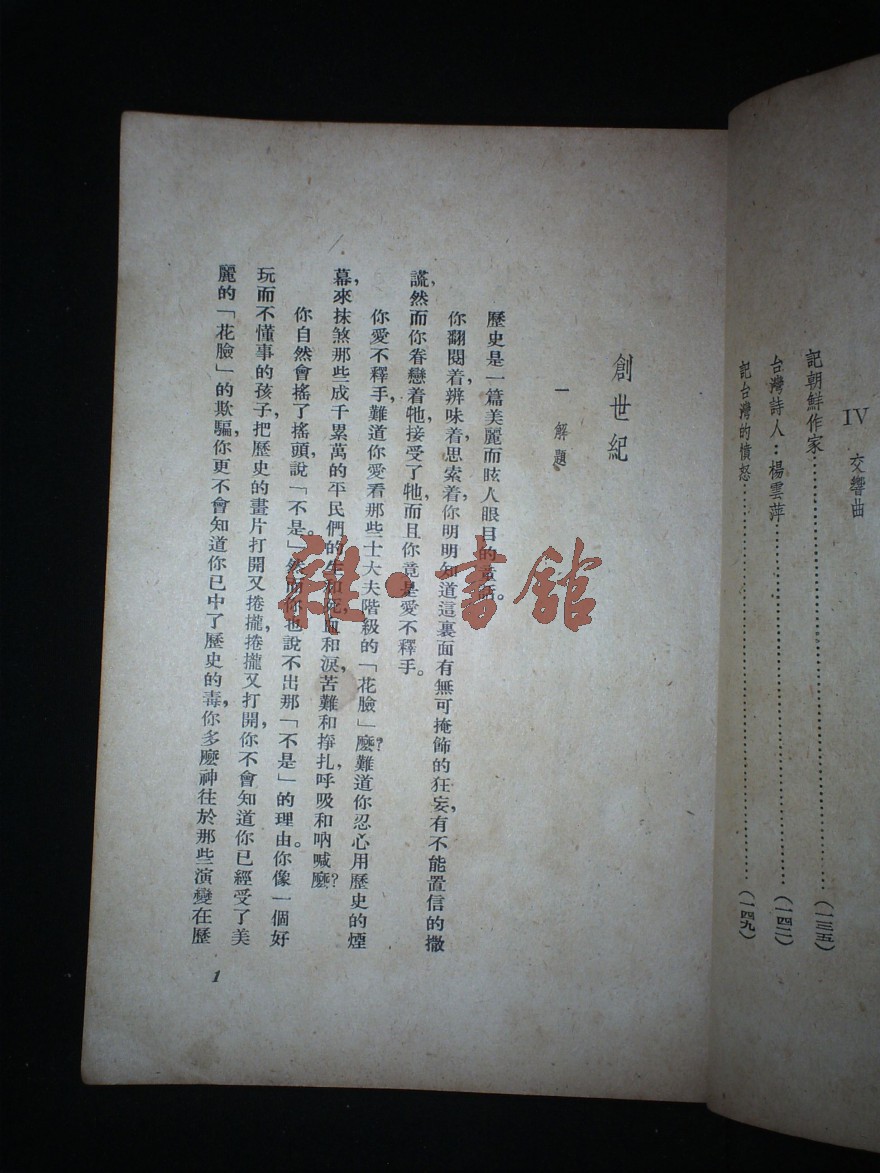 IV 交響曲
記朝鮮作家……………………………………(一三五)
台灣詩人：楊雲萍……………………………(一四二)
記台灣的憤怒…………………………………(一四九)
創世紀
一 解題
歷史是一篇美麗而眩人眼目的童話。
你翻閱着，辨味着，思索着，你明明知道這裏面有無可掩飾的狂妄，有不能置信的撒
謊，然而你眷戀着牠，接受了牠，而且你竟是愛不釋手。
你愛不釋手，難道你愛看那些士大夫階級的「花臉」麼？難道你忍心用歷史的煙
幕，來抹煞那些成千累萬的平民們的生和死，血和淚，苦難和掙扎，呼吸和吶喊麼？
你自然會搖了搖頭，說「不是」。然而你也說不出那「不是」的理由。你像一個好
玩而不懂事的孩子，把歷史的畫片打開又捲攏，捲攏又打開，你不會知道你已經受了美
麗的「花臉」的欺騙，你更不會知道你已中了歷史的毒，你多麼神往於那些演變在歷
1
雜·書館